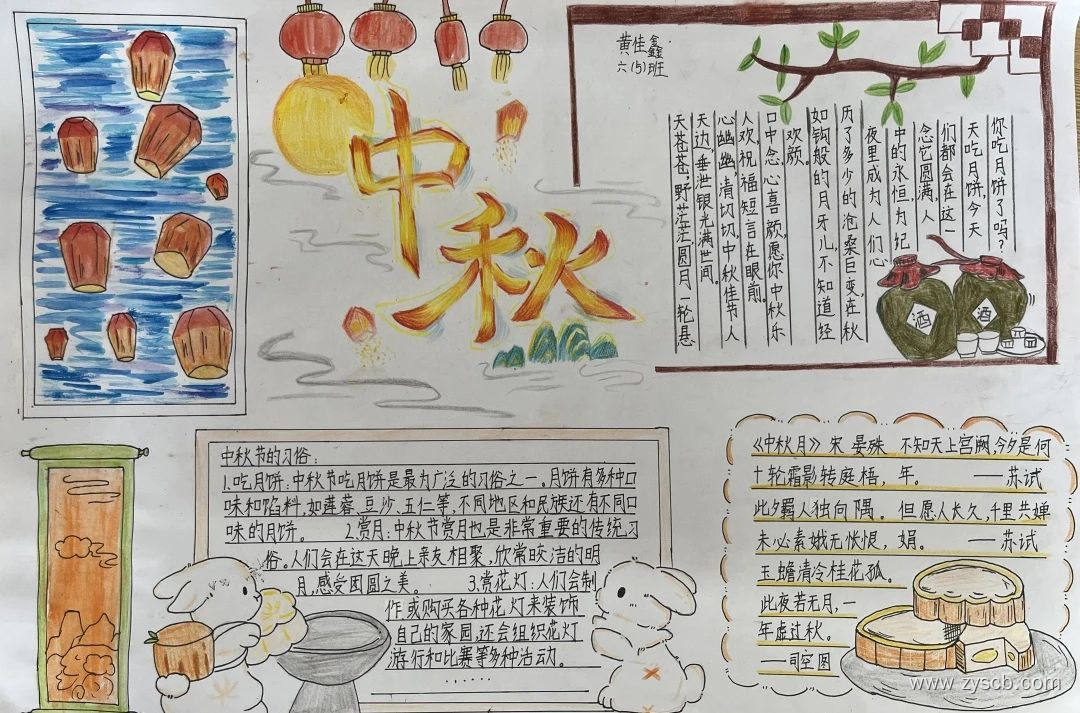 中秋
黄佳鑫
六(5)班
你吃月饼了吗？
天吃月饼，今天
们都会在这一
念它圆满，人
中的永恒为纪
夜里成为人们心
历了多少的沧桑巨变，在秋
如钩般的月牙儿，不知道经
欢颜。
口中念，心喜颜，愿你中秋乐
人欢，祝福短言在眼前。
心幽幽，清切切，中秋佳节人
天边，垂泄银光满世间。
天苍苍，野茫茫，圆月一轮悬
酒
酒
中秋节的习俗：
1.吃月饼：中秋节吃月饼是最为广泛的习俗之一。月饼有多种口
味和馅料，如莲蓉、豆沙、五仁等，不同地区和民族还有不同口
味的月饼。 2.赏月：中秋节赏月也是非常重要的传统习
俗。人们会在这天晚上亲友相聚，欣常皎洁的明
月，感受团圆之美。 3.赏花灯：人们会制
作或购买各种花灯来装饰
自己的家园，还会组织花灯
游行和比赛等多种活动。
......
《中秋月》宋 晏殊 不知天上宫阙，今夕是何
十轮霜影转庭梧， 年。 ——苏试
此夕羁人独向隅。 但愿人长久，千里共婵
未必素娥无怅恨， 娟。 ——苏试
玉蟾清冷桂花孤。
此夜若无月，一
年虚过秋。
——司空图
www.zyscb.com